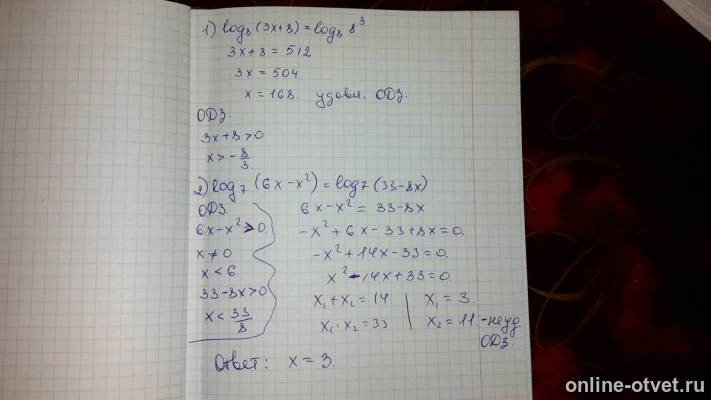 1) log₈(3x+8) = log₈ 8³
3x+8 = 512
3x = 504
x = 168 удовл. ОДЗ.
ОДЗ
3x+8>0
x>-8/3
2) log₇(6x-x²) = log₇(33-8x)
ОДЗ.
6x-x²>0.
x≠0
x<6.
33-8x>0
x<33/8
6x-x² = 33-8x
-x²+6x-33+8x=0.
-x²+14x-33=0.
x²-14x+33=0.
x₁+x₂=14
x₁·x₂=33
x₁=3.
x₂=11.-неуд
ОДЗ.
Ответ: x=3.
online-otvet.ru